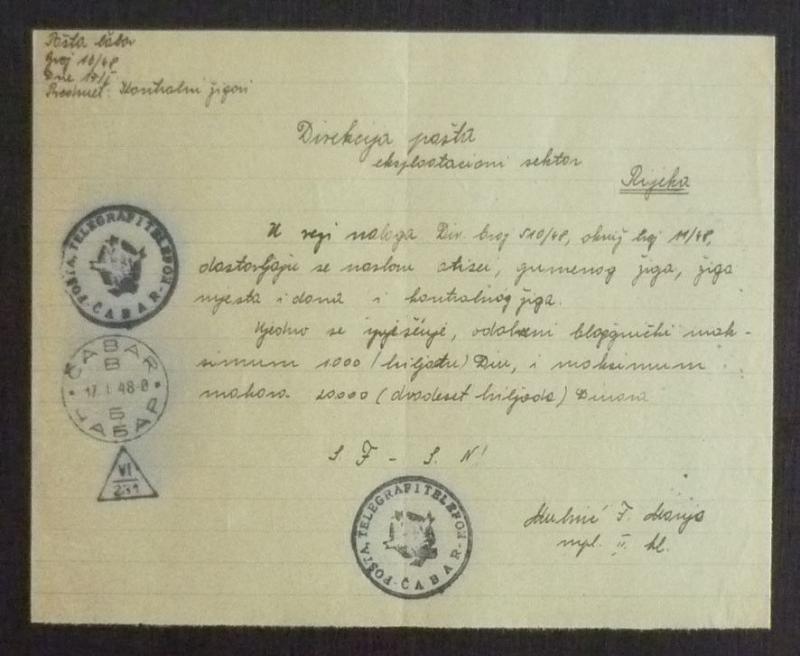 Pošta Čabar
Broj 10/48
Dne 17/I
Predmet: Kontrolni žigovi
Direkcija pošta
eksploatacioni sektor
Rijeka
U vezi naloga Dir. broj 510/48, okruž broj 11/48,
dostavljaju se naslovu otisci, gumenog žiga, žiga
mjesta i dana i kontrolnog žiga.
Ujedno se izvješćuje, odobreni blagajnički mak-
simum 1000 (hiljadu) Din, i maksimum
maraka 20000 (dvadeset hiljada) Dinara
S. F - S. N!
F. Marija
mpl. II. kl.
POŠTA, TELEGRAF I TELEFON
ČABAR
ČABAR
B
17. I 48-0
Б
ЧАБАР
VI
231
POŠTA, TELEGRAF I TELEFON
ČABAR